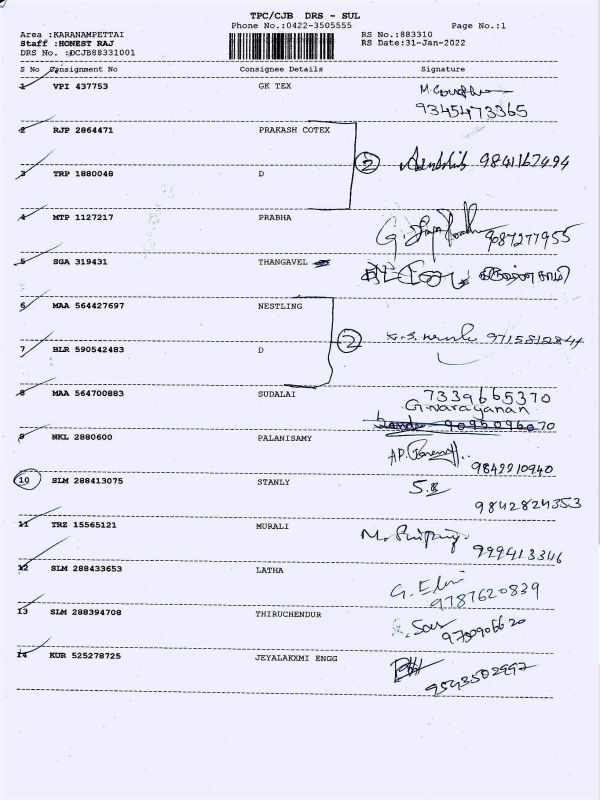 TPC/CJB DRS - SUL
Phone No.:0422-3505555 Page No.:1
Area :KARANAMPETTAI RS No.:883310
Staff :HONEST RAJ RS Date:31-Jan-2022
DRS No. :DCJB88331001
S No Consignment No Consignee Details Signature
1 VPI 437753 GK TEX
9345473365
2 RJP 2864471 PRAKASH COTEX
2 9841167494
3 TRP 1880048 D
4 MTP 1127217 PRABHA
9087277955
5 SGA 319431 THANGAVEL
6 MAA 564427697 NESTLING
2 9715812844
7 BLR 590542483 D
8 MAA 564700883 SUDALAI 7339665370
G.Narayanan
9 NKL 2880600 PALANISAMY
9842210940
10 SLM 288413075 STANLY
9842824353
11 TRZ 15565121 MURALI
999413346
12 SLM 288433653 LATHA
9787620839
13 SLM 288394708 THIRUCHENDUR
14 KUR 525278725 JEYALAKXMI ENGG
9543502997